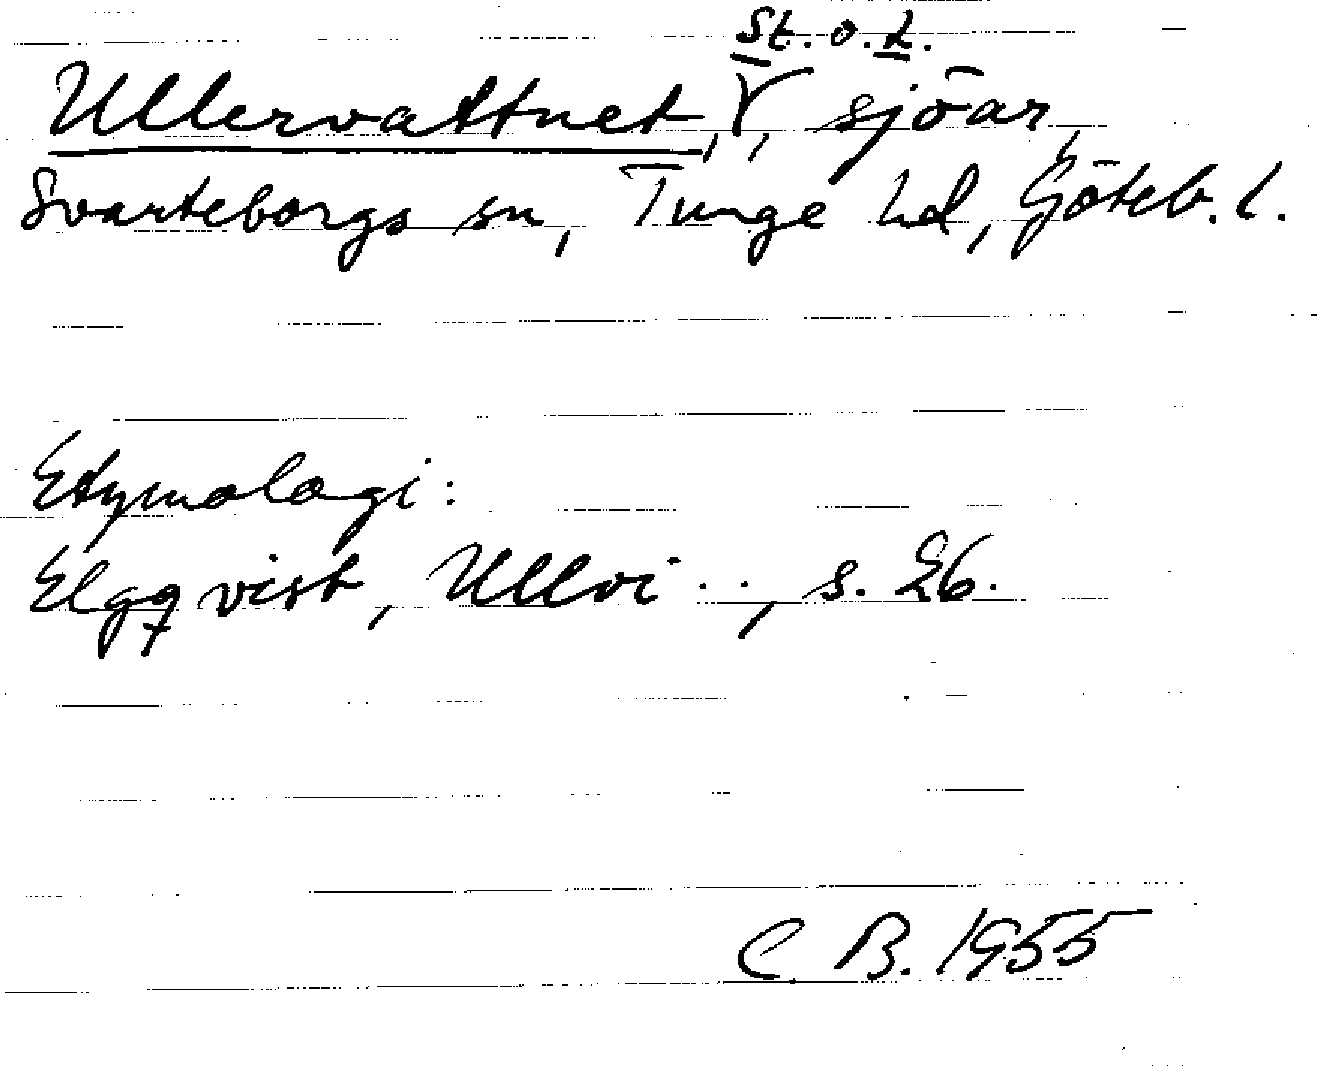 St. o. L.
Ullervattnet, sjöar,
Svarteborgs sn, Tunge hd, Göteb. l.
Etymologi:
Elgqvist, Ullvi . ., s. 26.
C B. 1955